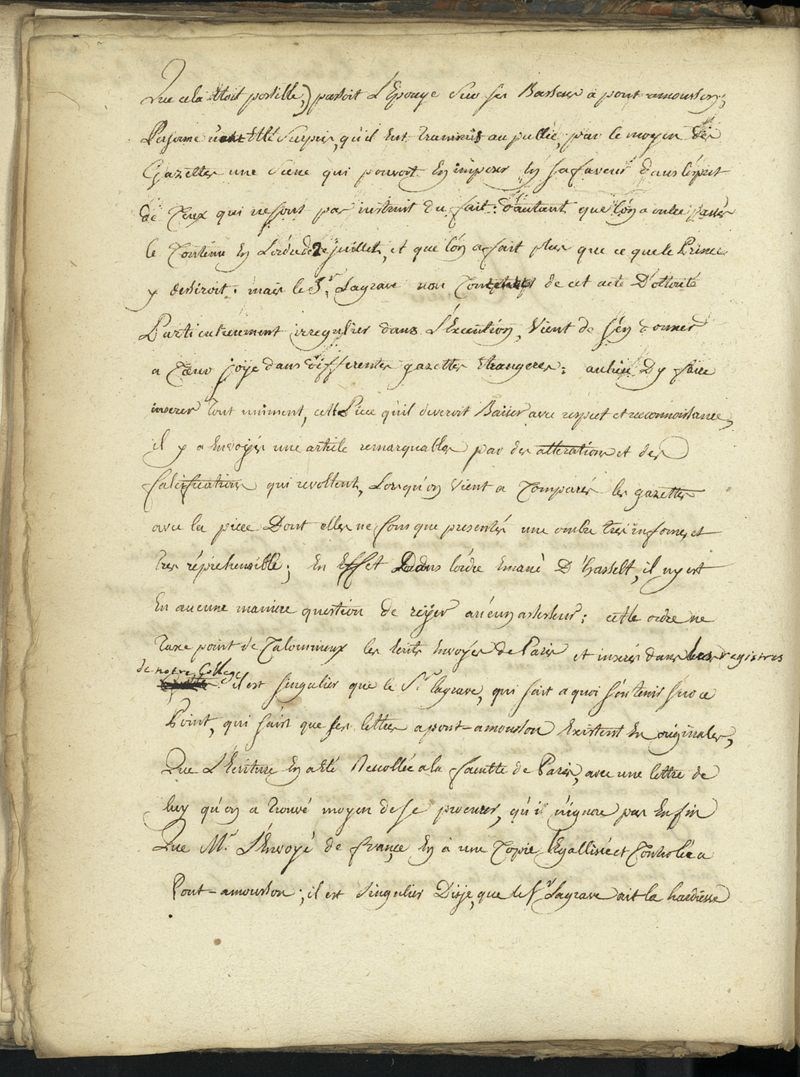 Que cela étoit possille,) passoit L'Eponge sur ses Basseses a pont-amousson;
Personne n'eut été surpris, qu'il eut transmis au public, par le moyen des
Gazettes une Scene qui pouvoit En imposer En sa faveur dans l'esprit
de Ceux qui ne sont pas instruit du fait: d'autant que l'on a outre passés
le Contenu En L'ordre du 2e juillet, et que l'on a fait plus que ce que le Prince
y desiroit. mais le Sr. Lagrave non Content de cet acte D'ottorité
Particulierement irregulier dans L'Execution, Vient de s'en donner
a Cœur joye dans differentes gazettes Etrangeres: aulieu D'y faire
inserer tout uniment, cette Piece qu'il devroit Baiser avec respect et reconnoissance,
il y a Envoyés une article remarquable par des alterations et des
falcifications qui revoltent, Lorsqu'on Vient a Comparer les gazettes
avec la piece Dont elles ne sont que presentés une ombre tres informes et
tres répréhensible; En Effet Dans l'ordre Emané D'Hasselt, il n'y est
En aucune maniere question de reijer ancun assesseur: cette ordre ne
Taxe point de Calomnieux les ecrits Envoyés de Paris et inserés dans les registres
de notre College
il est singulier que le Sr. lagrave, qui sait a quoi s'en tenir sur ce
Point, qui sait que ses lettres a pont-amousson Existent En originales,
Que L'Ecriture En a été Recollée a la faculté de Paris, avec une lettre de
luy qu'on a trouvé moyen de se procurer, qu'il n'ignore pas Enfin
Que Mr. L'Envoyé de france, En a une Copie legallisée et Controlée a
Pont-amousson; il est singulier Disje, que le Sr. Lagrave ait la hardiesse